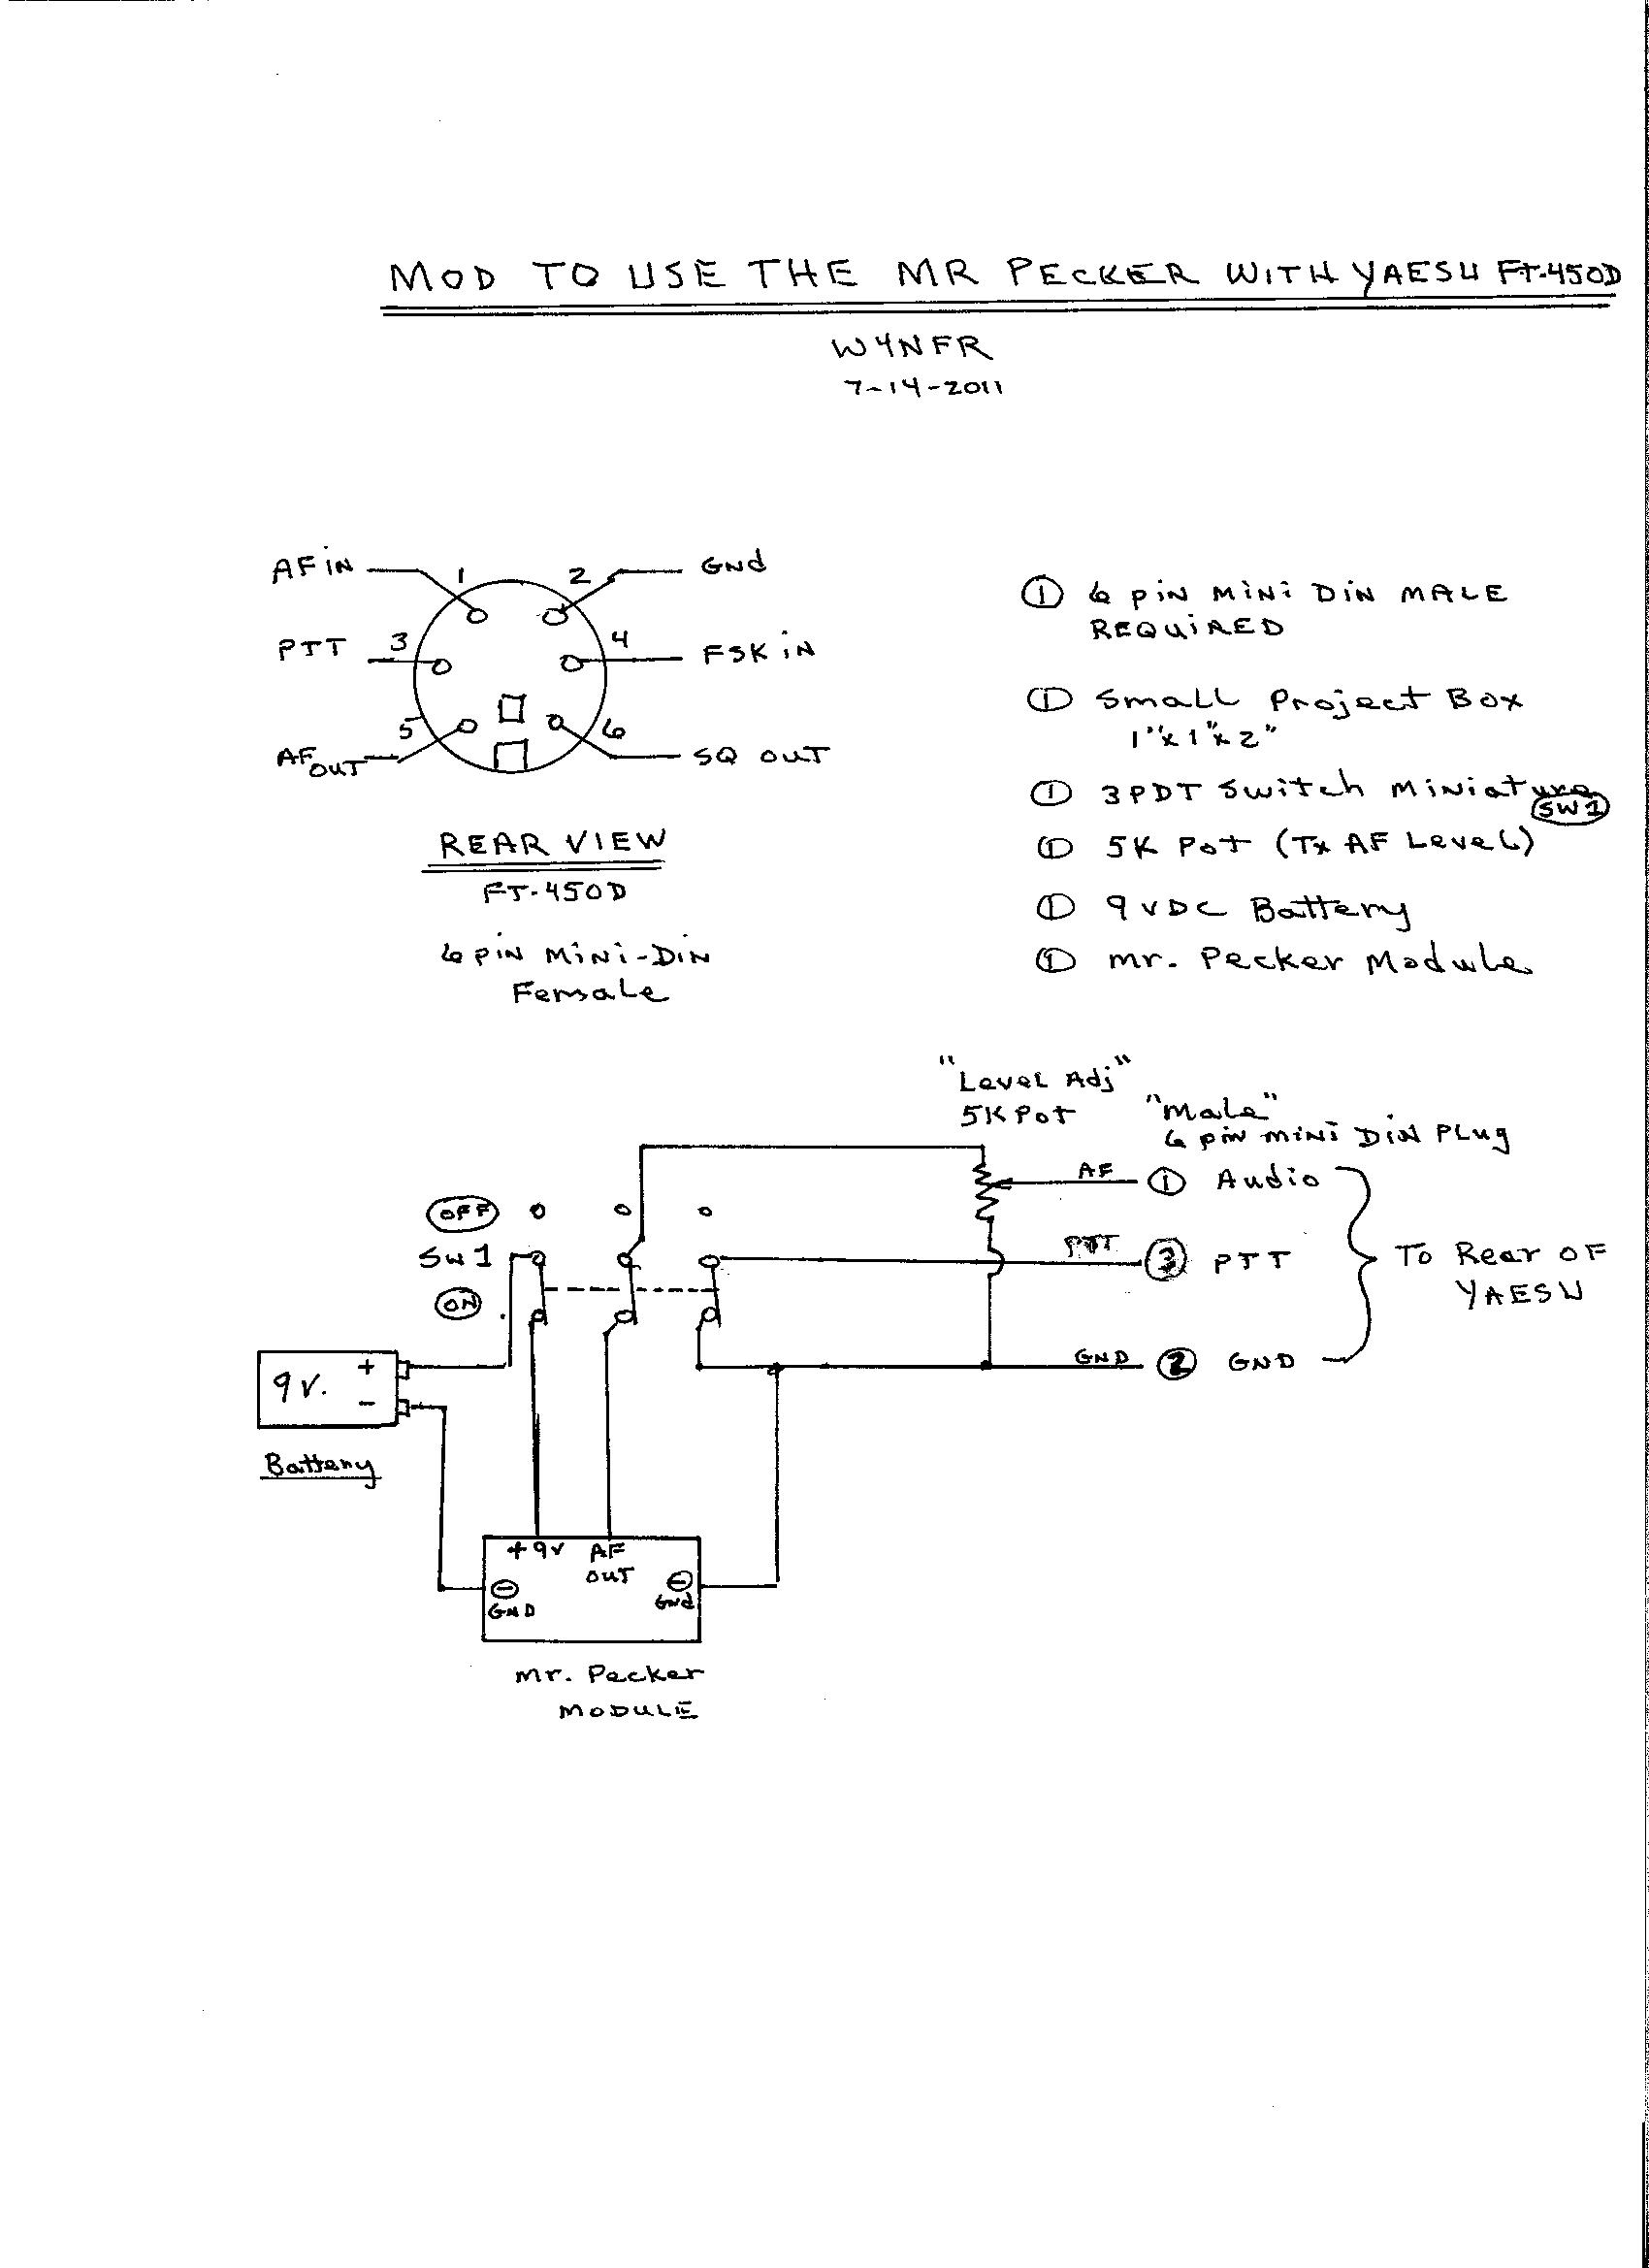 MOD TO USE THE MR PECKER WITH YAESU FT-450D
W4NFR
7-14-2011
AF IN 1 2 GND
PTT 3 4 FSK IN
5 6
AF OUT SQ OUT
REAR VIEW
FT-450D
6 PIN MINI-DIN
Female
① 6 PIN MINI DIN MALE
REQUIRED
① Small Project Box
1"x1"x2"
① 3PDT Switch Miniature
SW1
① 5K Pot (Tx AF Level)
① 9 VDC Battery
① Mr. Pecker Module
"Level Adj"
5K Pot
"Male"
6 pin mini DIN Plug
AF ① Audio
OFF
SW1
PTT ③ PTT
To Rear OF
YAESU
ON
GND ② GND
9V. + -
Battery
+9V AF
OUT
- GND
- GND
Mr. Pecker
MODULE